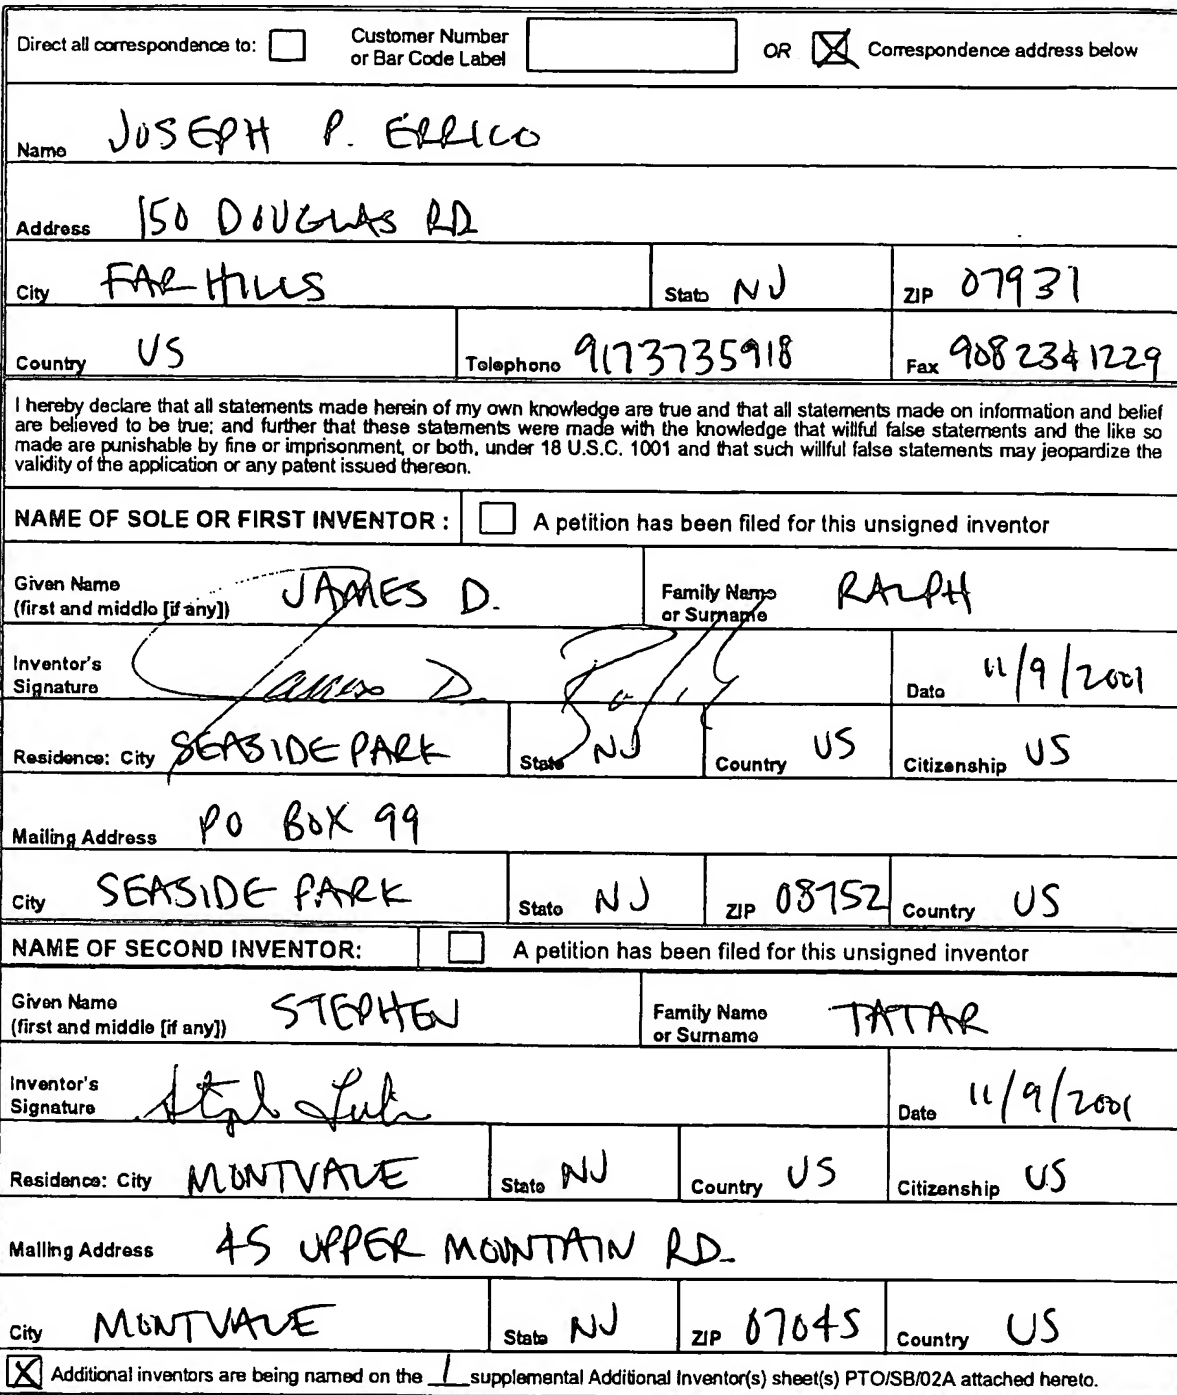 Direct all correspondence to: Customer Number or Bar Code Label OR Correspondence address below
Name JOSEPH P. ERRICO
Address 150 DOUGLAS RD
City FAR HILLS State NJ ZIP 07931
Country US Telephone 9173735918 Fax 9082341229
I hereby declare that all statements made herein of my own knowledge are true and that all statements made on information and belief
are believed to be true; and further that these statements were made with the knowledge that willful false statements and the like so
made are punishable by fine or imprisonment, or both, under 18 U.S.C. 1001 and that such willful false statements may jeopardize the
validity of the application or any patent issued thereon.
NAME OF SOLE OR FIRST INVENTOR : A petition has been filed for this unsigned inventor
Given Name (first and middle [if any]) JAMES D. Family Name or Surname RALPH
Inventor's Signature James D. Ralph Date 11/9/2001
Residence: City SEASIDE PARK State NJ Country US Citizenship US
Mailing Address PO BOX 99
City SEASIDE PARK State NJ ZIP 08752 Country US
NAME OF SECOND INVENTOR: A petition has been filed for this unsigned inventor
Given Name (first and middle [if any]) STEPHEN Family Name or Surname TATAR
Inventor's Signature Date 11/9/2001
Residence: City MONTVALE State NJ Country US Citizenship US
Mailing Address 45 UPPER MOUNTAIN RD.
City MONTVALE State NJ ZIP 07045 Country US
X Additional inventors are being named on the 1 supplemental Additional Inventor(s) sheet(s) PTO/SB/02A attached hereto.